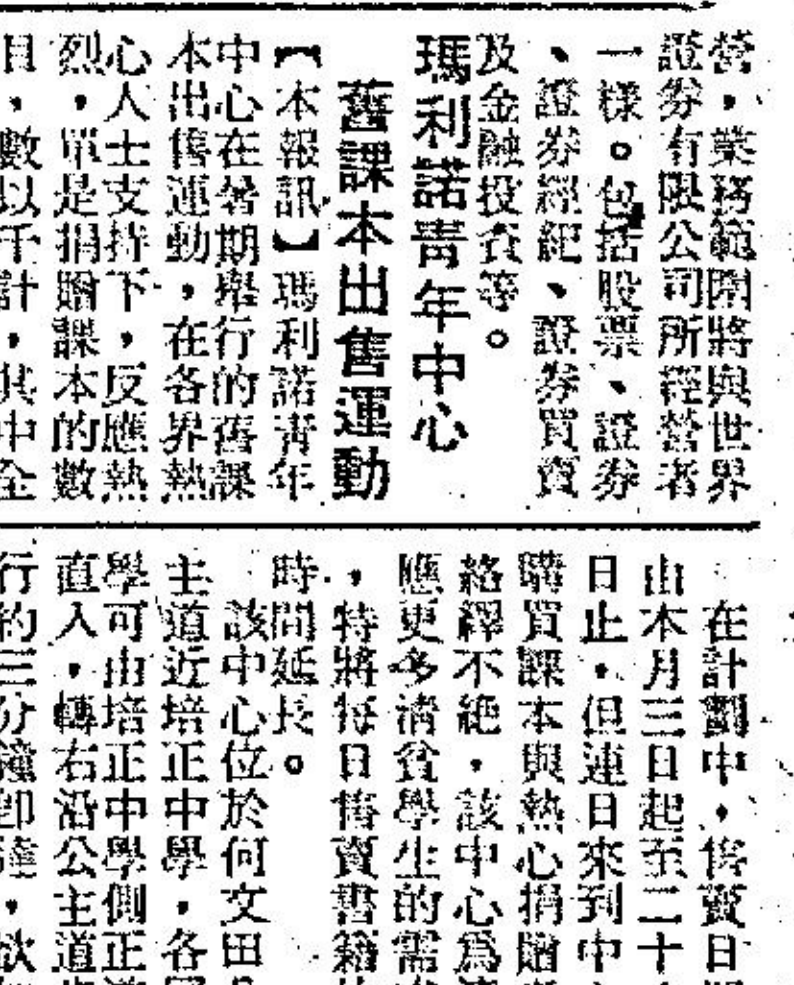 營，業務範圍將與世界
證券有限公司所經營者
一樣。包括股票、證券
、證券經紀、證券買賣
及金融投資等。
瑪利諾青年中心
舊課本出售運動
【本報訊】瑪利諾青年
中心在暑期舉行的舊課
本出售運動，在各界熱
心人士支持下，反應熱
烈，單是捐贈課本的數
目，數以千計，其中全
在計劃中，售賣日
由本月三日起至二十
日止，但連日來到中
購買課本與熱心捐贈
絡繹不絕，該中心為
應更多清貧學生的需
，特將每日售賣書籍
時間延長。
該中心位於何文田
主道近培正中學，各
學可由培正中學側正
直入，轉右沿公主道
行約三分鐘即達，欲